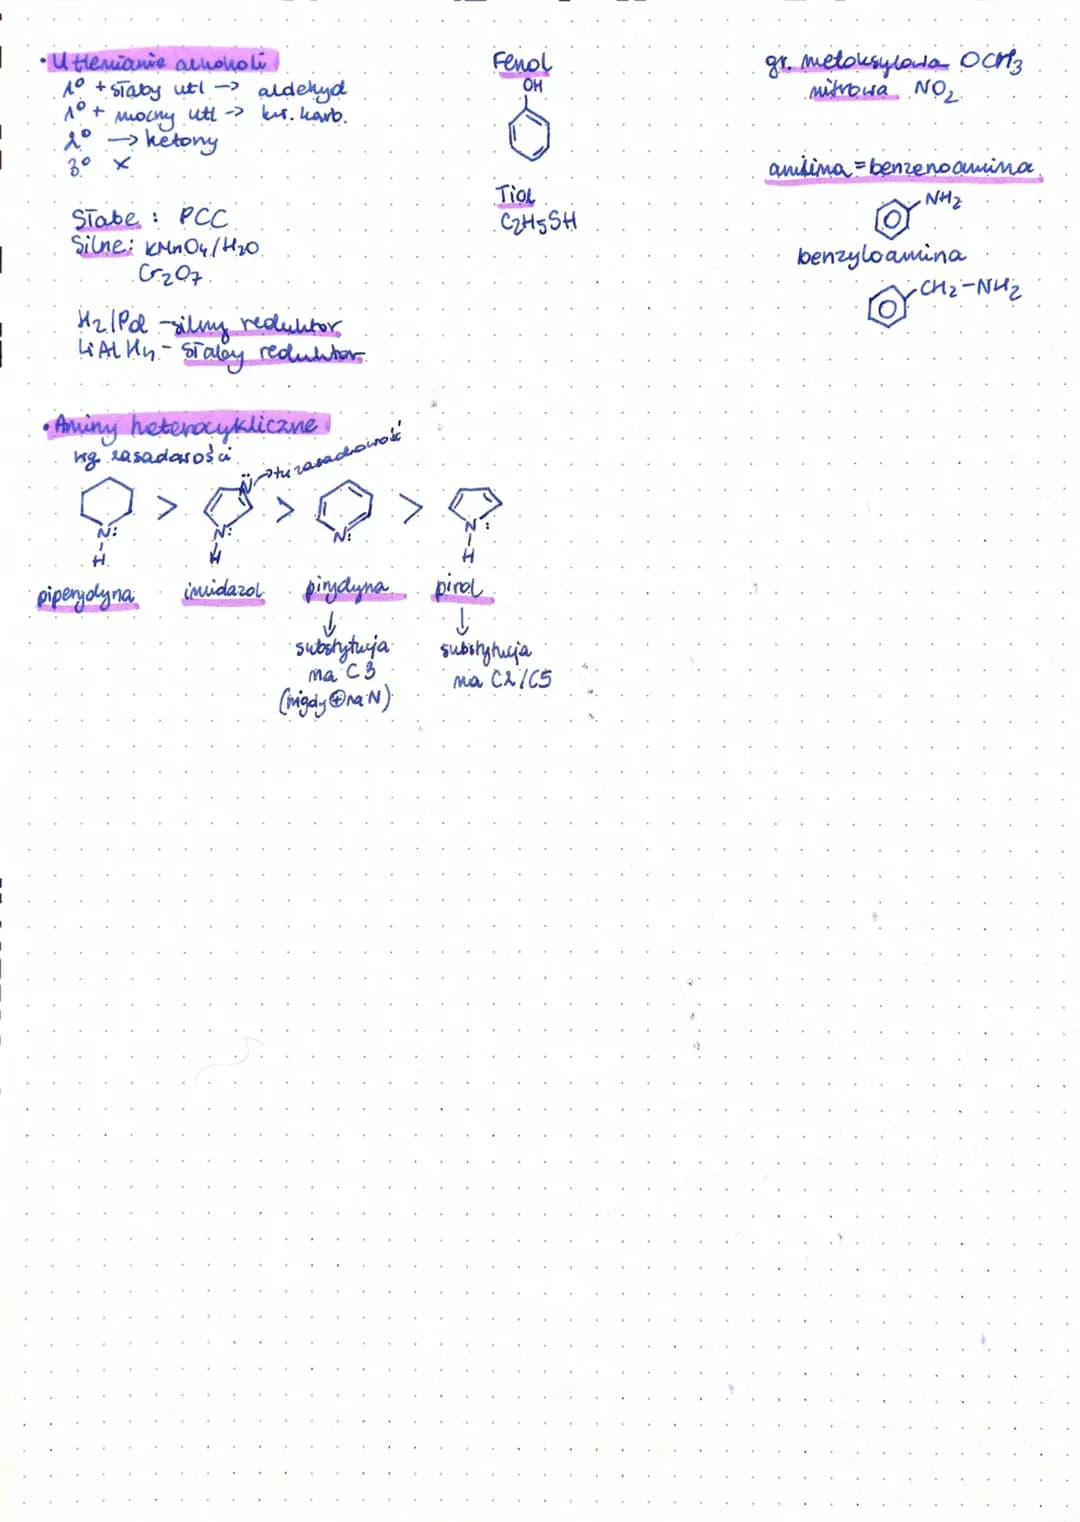 • Utlenianie alkoholi
1° + słaby utl -> aldehyd
1° + mocny utl -> kw. karb.
2° -> ketony
3° x
Słabe : PCC
Silne: KMnO4/H2O
Cr2O7
H2/Pd - silny reduktor
LiAlH4 - słaby reduktor
Fenol
OH
Tiol
C2H5SH
gr. metoksylowa OCH3
nitrowa NO2
anilina = benzenoamina
NH2
benzyloamina
CH2-NH2
• Aminy heterocykliczne
wg. zasadowości
N: -> tu zasadowość
> > >
N: N: N: N:
H H H
piperydyna imidazol pirydyna pirol
↓ ↓
substytucja substytucja
na C3 na C2/C5
(nigdy ⊕ na N)